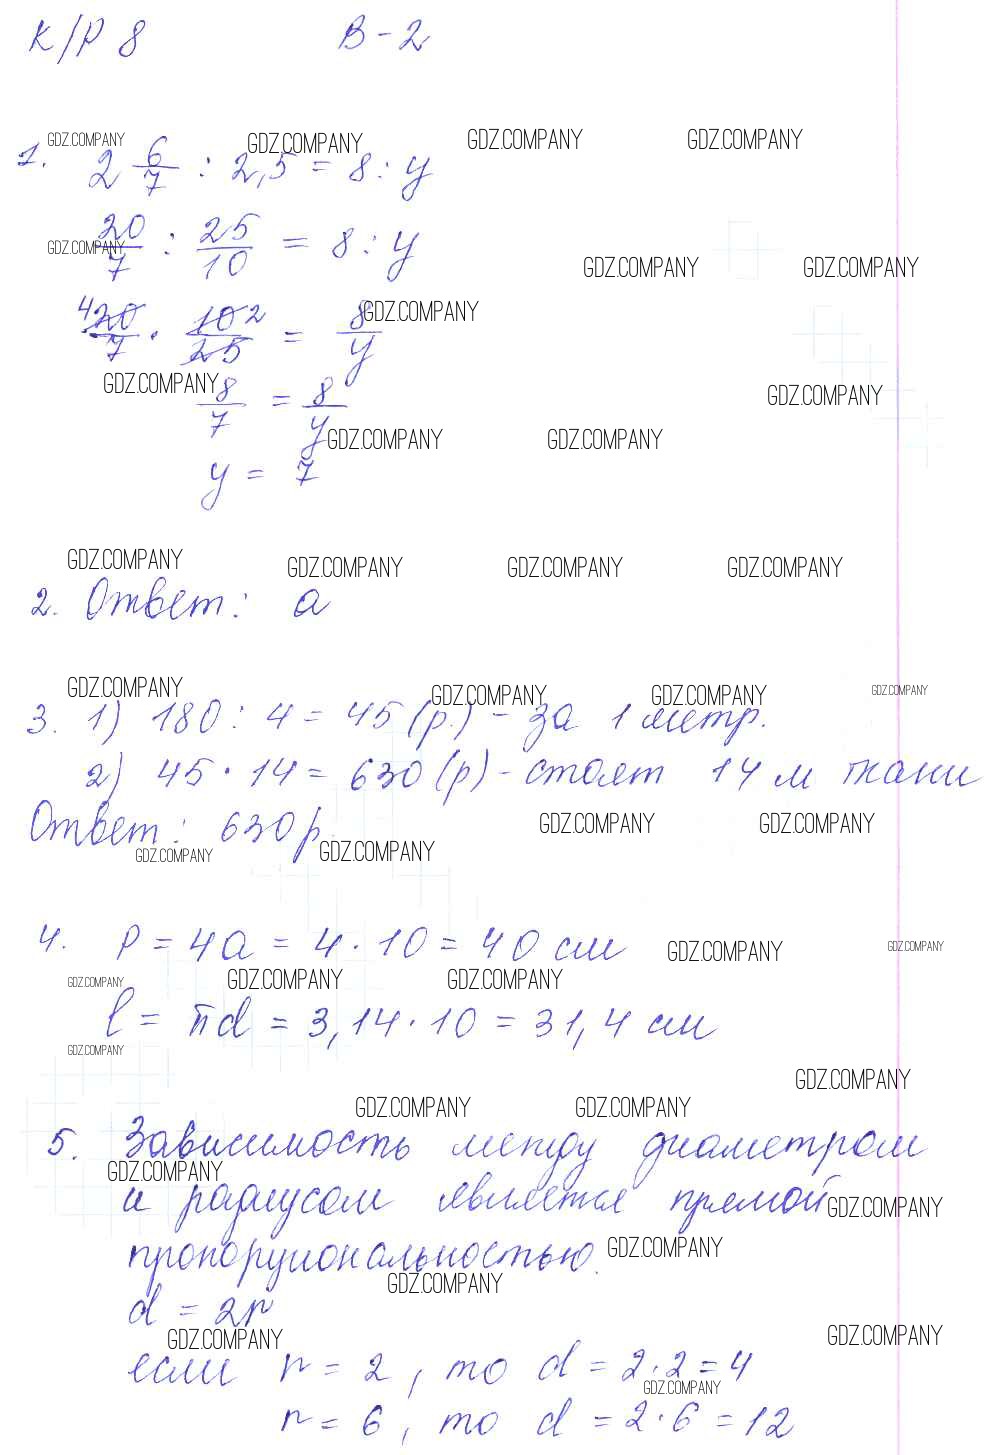 К/Р 8 В-2
GDZ.COMPANY GDZ.COMPANY GDZ.COMPANY GDZ.COMPANY
1. 2 6/7 : 2,5 = 8 : у
20/7 : 25/10 = 8 : у
GDZ.COMPANY GDZ.COMPANY GDZ.COMPANY
4 20/7 · 10 2/25 = 8/у
GDZ.COMPANY
GDZ.COMPANY GDZ.COMPANY
8/7 = 8/у
GDZ.COMPANY GDZ.COMPANY
у = 7
GDZ.COMPANY GDZ.COMPANY GDZ.COMPANY GDZ.COMPANY
2. Ответ: а
GDZ.COMPANY GDZ.COMPANY GDZ.COMPANY GDZ.COMPANY
3. 1) 180 : 4 = 45 (р.) - за 1 метр.
2) 45 · 14 = 630 (р) - стоят 14 м ткани
Ответ: 630 р.
GDZ.COMPANY GDZ.COMPANY
GDZ.COMPANY GDZ.COMPANY
4. Р = 4а = 4 · 10 = 40 см
GDZ.COMPANY GDZ.COMPANY
GDZ.COMPANY GDZ.COMPANY GDZ.COMPANY
l = πd = 3,14 · 10 = 31,4 см
GDZ.COMPANY
GDZ.COMPANY
GDZ.COMPANY GDZ.COMPANY
5. Зависимость между диаметром
GDZ.COMPANY
и радиусом является прямой
GDZ.COMPANY
пропорциональностью.
GDZ.COMPANY
GDZ.COMPANY
d = 2r
GDZ.COMPANY GDZ.COMPANY
если r = 2, то d = 2·2 = 4
GDZ.COMPANY
r = 6, то d = 2·6 = 12